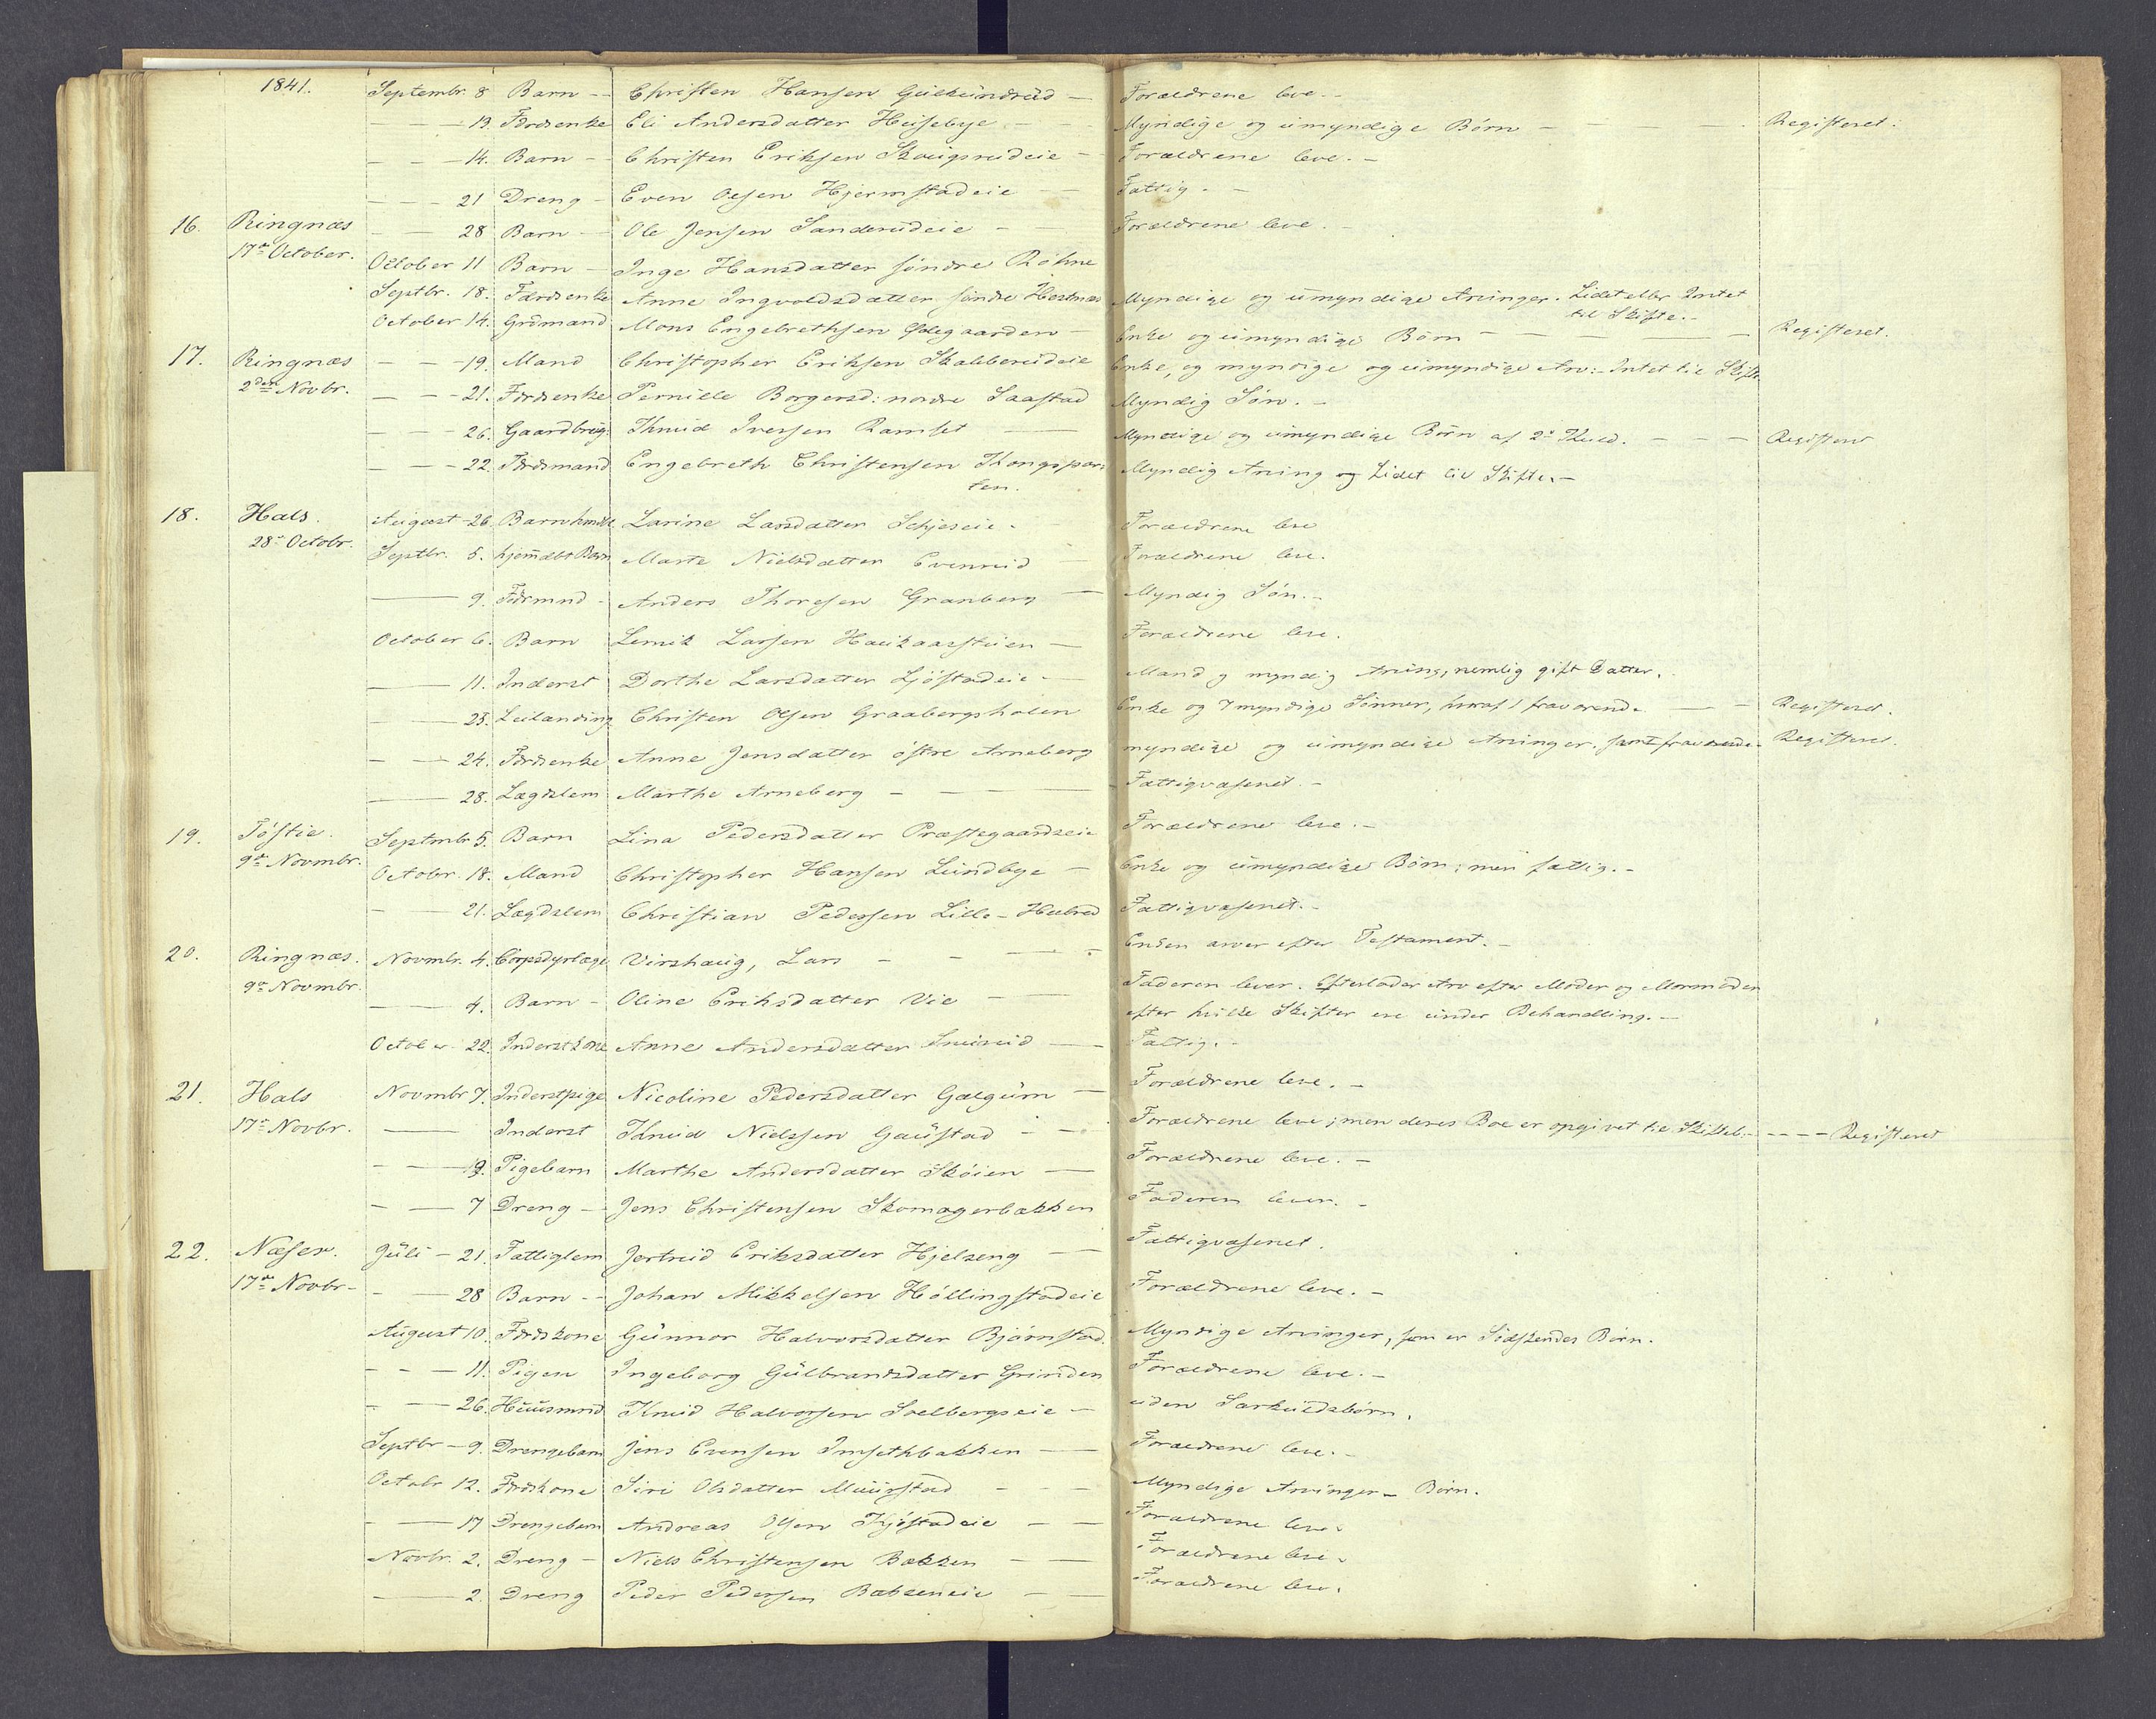 1841. Septembr. 8 Barn - - Christen Hansen Gulkündrüd - Forældrene leve. -
- - 13. Fdrdsenke Eli Andersdatter Huisebye - - Myndige og umyndige Børn - - - - Registeret.
- - - 14. Barn - - Christen Eriksen Skougsrudeie - - Forældrene leve. -
- - - 21 Dreng - Even Olsen Hjermstadeie - - Fattig. -
16. Ringnæs - - 28 Barn - - Ole Jensen Sanderudeie - - Forældrene leve. -
17de October. October 11 Barn - Inge Hansdatter søndre Røhne
Septbr. 18. Færdsenke Anne Ingvoldsdatter søndre Hestnæs Myndige og umyndige Arvinger. Lidet eller Intet
til Skifte. -
October 14. Grdmand Mons Engebrethsen Ødegaarden - Enke og umyndige Børn - - - - Registeret.
17. Ringnæs - - - 19. Mand Christopher Eriksen Skabberudeie Enke, og myndige og umyndige Arv: - Intet til Skifte
2den Novbr. - - - 21. Fdrdsenke Pernille Borgersd: nordre Saastad Myndig Søn. -
- - - 26. Gaardbrug. Knud Iversen Ramset - Myndige og umyndige Børn af 2det Kuld. - - - Registeret
- - - 22. Fdrdsmand Engebreth Christensen Kongspar-
ten. Myndig Arving og Lidet til Skifte. -
18. Hals. August - 26. Barn Larine Larsdatter Schjeseie - Forældrene leve
28de Octobr. Septbr. 5. hjemdøbt Barn Marte Nielsdatter Evenrud - Forældrene leve.
- 9. Fdrmnd - Anders Thoresen Granberg - Myndig Søn. -
October 6. Barn Lemik Larsen Haukaasstuen - Forældrene leve.
- 11. Inderst Dorthe Larsdatter Ljøstadeie - Mand og myndig Arving, nemlig gift Datter.
- 23. Leilænding Christen Olsen Graabergsholen Enke og 7 myndige Sønner, hvoraf 1 fraværende - - Registeret.
- - 24. Fdrdsenke Anne Jensdatter østre Arneberg myndige og umyndige Arvinger, samt fraværende - Registeret.
- 28. Lægdslem Marthe Arneberg - - - - Fattigvæsenet. -
19. Tøftie. Septmbr 5. Barn Lina Pedersdatter Præstegaardseie Forældrene leve. -
9de Novmbr. Octobr. 18. Mand Christopher Hansen Lundbye - Enke og umyndige Børn; men fattig. -
- - 21. Lægdslem Christian Pedersen Lille-Hulered Fattigvæsenet. -
20. Ringnæs. Novmbr. 4. Corpsdyrlæge Virshaug, Lars - - - - Enken arver efter Testament. -
9de Novmbr. - 4. Barn - Oline Eriksdatter Vie - - Faderen lever. Efterlader Arv efter Moder og Mormoder
efter hvilke Skifter ere under Behandling. -
October 22. Inderstkone Anne Andersdatter - Fattig. -
21. Hals Novmbr 7. Inderstpige Nicoline Pedersdatter Gælgum - Forældrene leve. -
17de Novbr. - Inderst Knud Nielssen Gaustad - - Forældrene leve; men deres Boe er opgivet til Skifteb. - - - - Registeret
- - 19. Pigebarn Marthe Andersdatter Skøien - Forældrene leve. -
- - 7 Dreng - Jens Christensen Skomagerbakken Faderen lever. -
22. Næser. Juli - 21. Fattiglem Jertrud Eriksdatter Hjelseng - Fattigvæsenet.
17de Novbr - - - 28 Barn - - Johan Mikkelsen Høllingstadeie Forældrene leve. -
August 10. Fdrdskone Gunnor Halvorsdatter Bjørnstad. Myndige Arvinger, som er Sødskendes Børn.
- - - 11. Pigen Ingeborg Gulbrandsdatter Grinden Forældrene leve. -
- - 26. Huusmnd Knud Halvorsen Soelbergseie - uden Særkuldsbørn.
Septbr - 9. Drengebarn Jens Evensen Imsethbakken - - Forældrene leve. -
Octobr 12. Fdrdskone Siri Olsdatter Muurstad - - - Myndige Arvinger - Børn.
- - 17 Drengebarn Andreas Olsen Kjøstadeie - - Forældrene leve.
Novbr. 2. Dreng - Niels Christensen Bakken - - Forældrene leve.
- 2. Dreng Peder Pedersen Bakkeneie - - Forældrene leve.